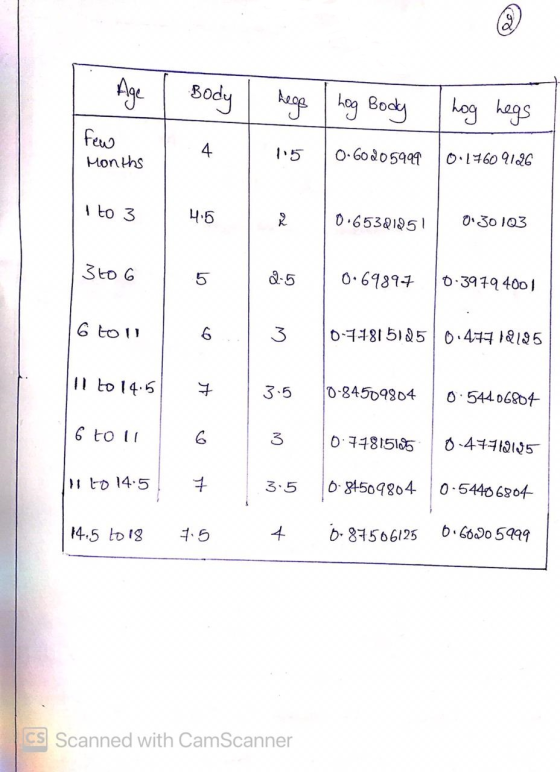 2
Age Body Legs Log Body Log Legs
Few Months 4 1.5 0.60205999 0.17609126
1 to 3 4.5 2 0.65321251 0.30103
3 to 6 5 2.5 0.69897 0.39794001
6 to 11 6 3 0.77815125 0.47712125
11 to 14.5 7 3.5 0.84509804 0.54406804
6 to 11 6 3 0.77815125 0.47712125
11 to 14.5 7 3.5 0.84509804 0.54406804
14.5 to 18 7.5 4 0.87506125 0.60205999
CS Scanned with CamScanner